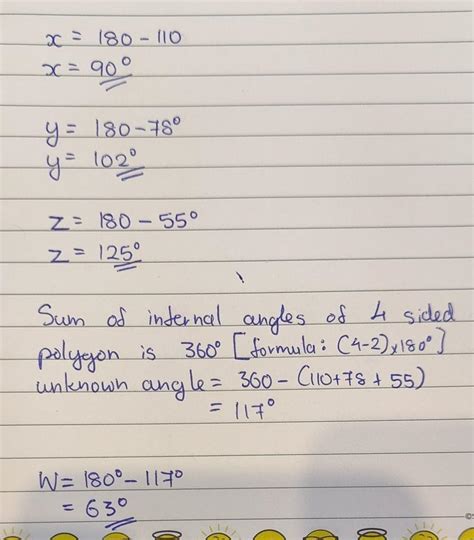 x = 180 - 110
x = 90°
y = 180 - 78°
y = 102°
z = 180 - 55°
z = 125°
Sum of internal angles of 4 sided
polygon is 360° [formula: (4-2)x180°]
unknown angle = 360 - (110+78 + 55)
= 117°
W = 180° - 117°
= 63°